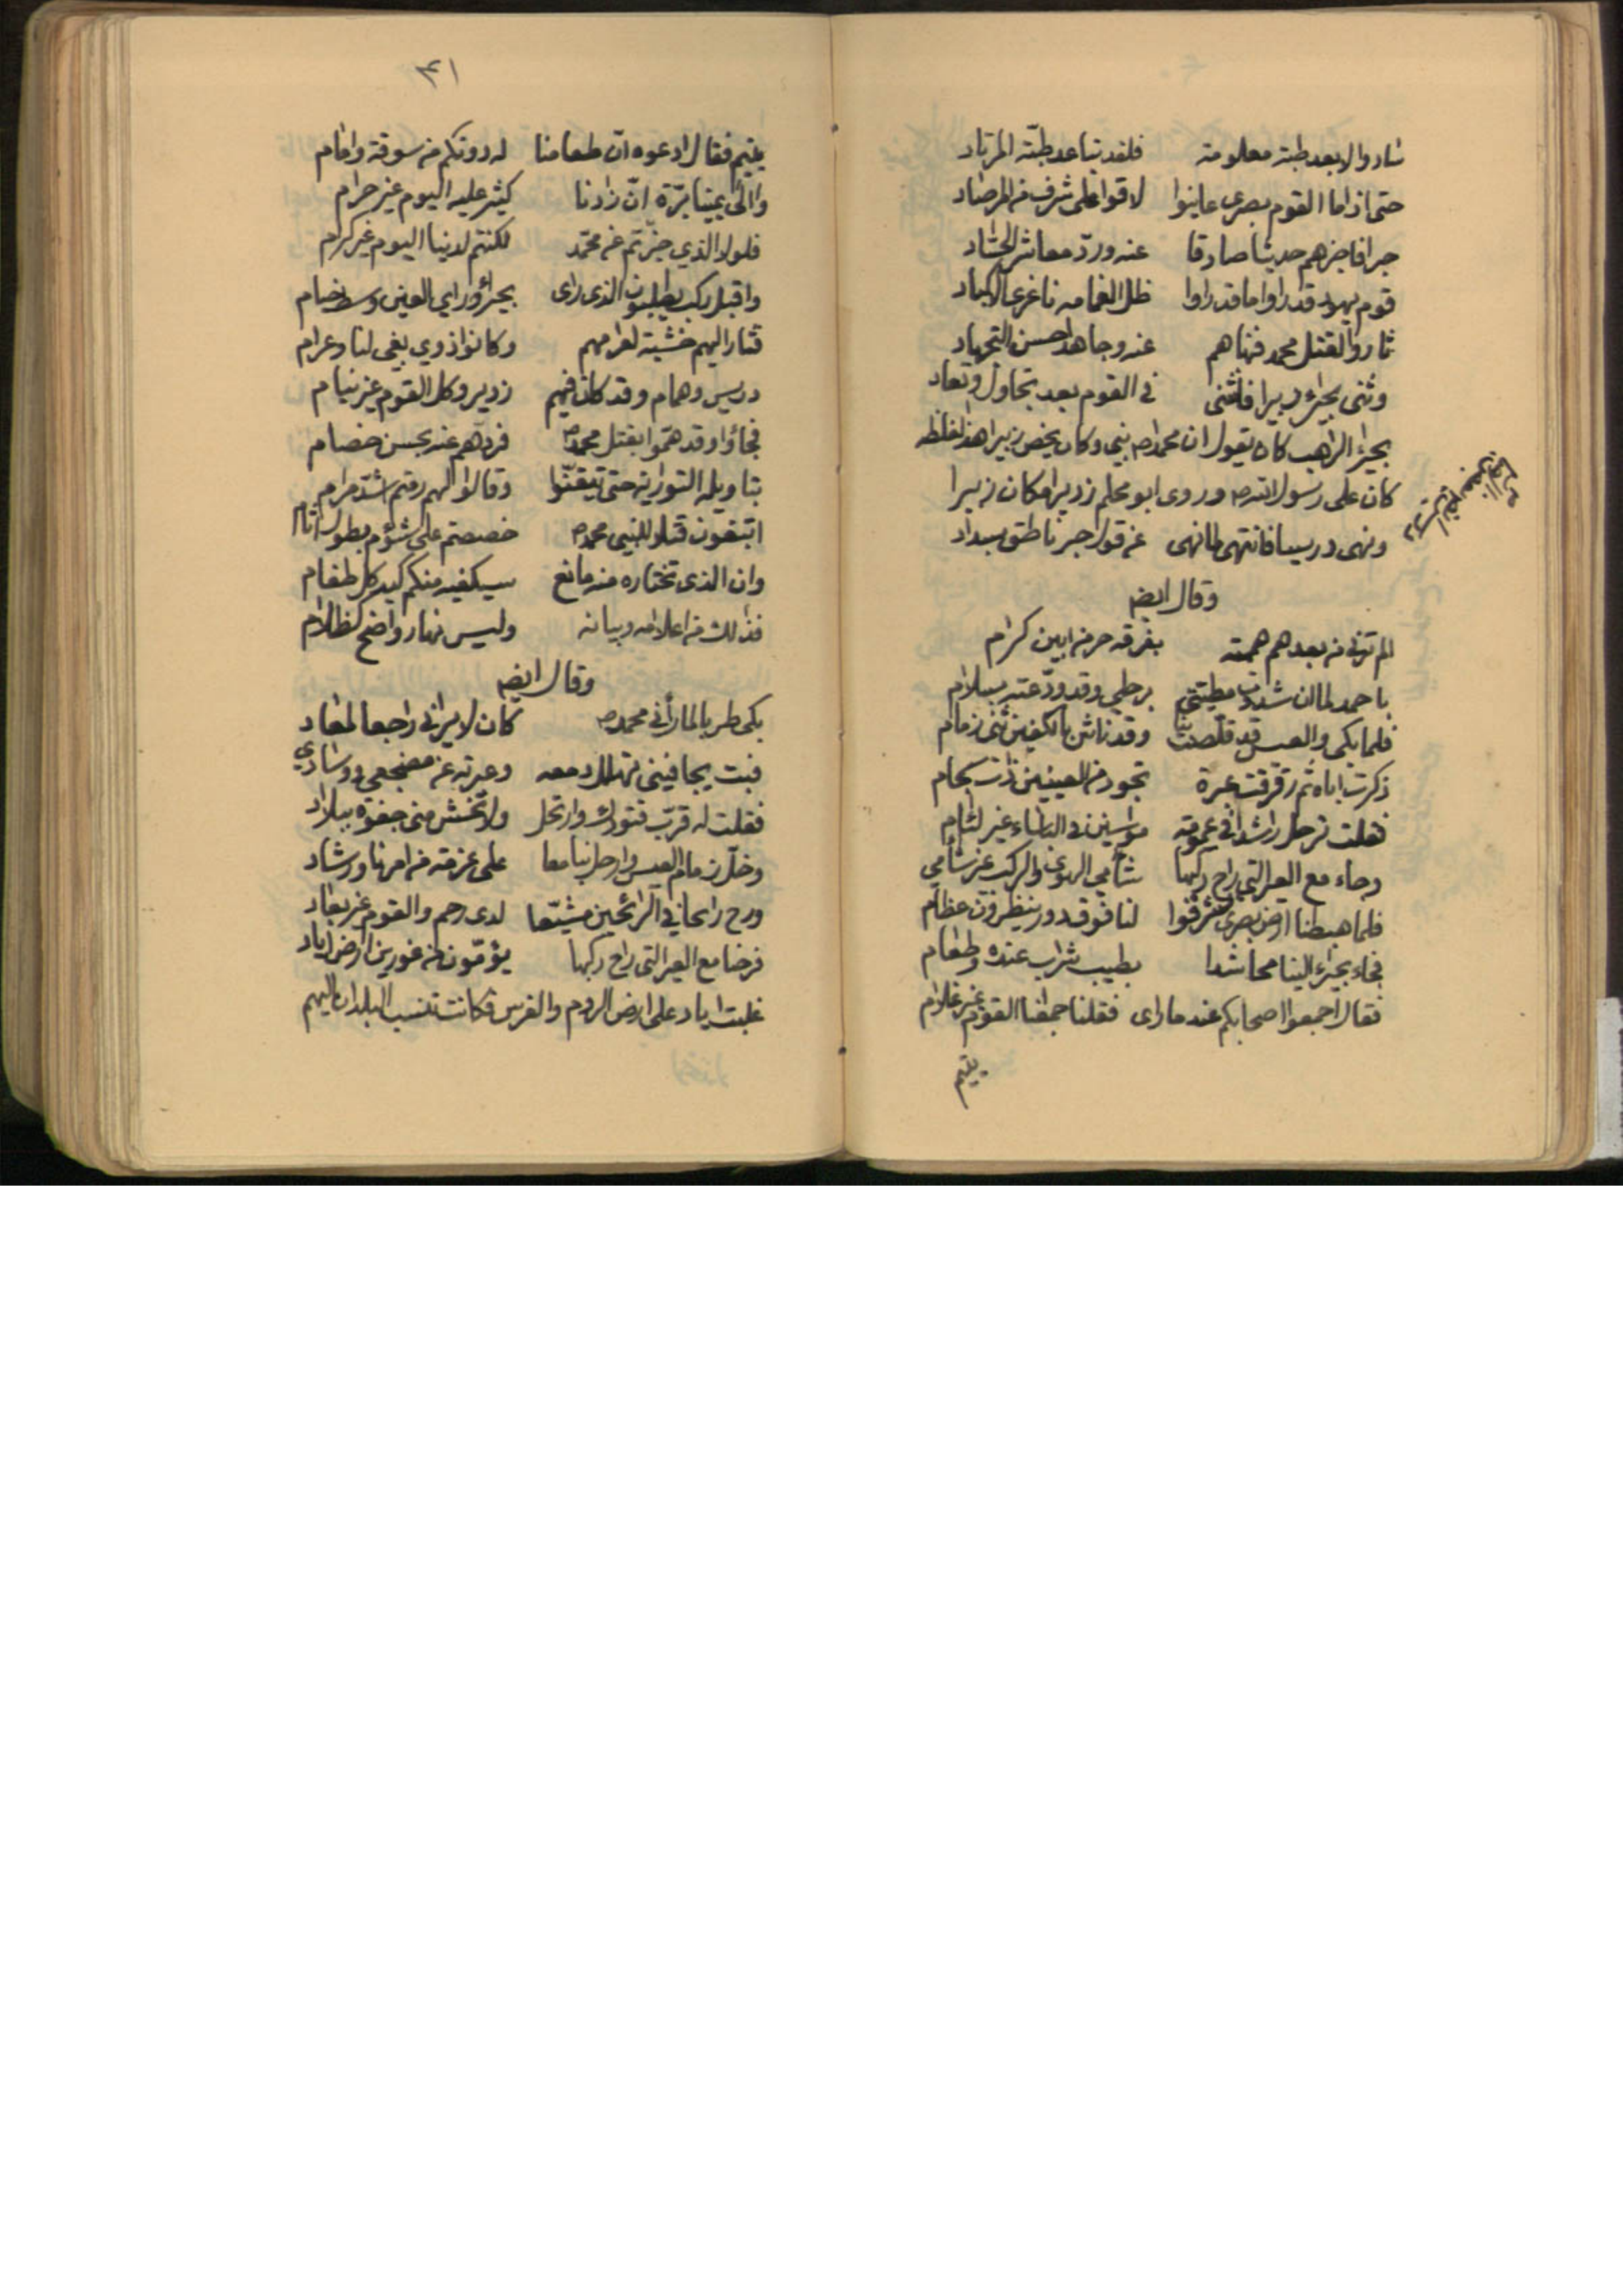 ساروا لابعد طية معلومة فلقد تباعد طيّة المرتاد
حتى اذا ما القوم بصرى عاينوا لاقوا على شرف من المرصاد
حبرا فاخبرهم حديثا صادقا عنه وردّ معاشر الحسّاد
قوم يهود قد راوا ما قد راوا ظل الغمامه ناغرى الاكباد
ثاروا لقتل محمد فنهاهم عنه وجاهد احسن التجهاد
وثنى بحيراء زبيرا فانثنى في القوم بعد تجاول وتعاد
بحيراء الراهب كان يقول ان محمدا ص نبي وكان يخص زبيرا هذا لغلظه
كان على رسول الله ص وروى ابو محلم زديرا مكان زبيرا
ونهى دريسا فانتهى لما نهى عن قول حبر ناطق بسداد
وقال ايضا
الم ترني من بعد هم هممته بفرقه حر من ابين كرام
باحمد لما ان شددت مطيتي برحلي وقد ودّعته بسلام
فلما بكى والعيس قد قلصت بنا وقد ناش بالكفين ثنى زمام
ذكرت اباه ثم رقرقت عبرة تجود من العينين ذات سجام
فقلت ترحل راشدا في عمومة مواسين في الباساء غير لئام
وجاء مع العير التي راح ركبها شامي الهوى والركب غير شامي
فلما هبطنا ارض بصرى تشرفوا لنا فوق دور ينظرون عظام
فجاء بحيراء الينا محاشدا بطيب شراب عنده وطعام
فقال اجمعوا اصحابكم عند ما راى فقلنا جمعنا القوم غير غلام
يتيم
٤١
يتيم فقال ادعوه ان طعامنا له دونكم من سوقة وامام
وآلى يمينا برّة انّ زادنا كثير عليه اليوم غير حرام
فلولا الذي خبّرتم عن محمّد لكنتم لدينا اليوم غير كرام
واقبل ركب يطلبون الذي راى بحيراء وراي العين وسط خيام
فثار اليهم خشية لعرامهم وكانوا ذوي بغي لنا وعرام
دريس وهمام وقد كان فيهم زدير وكل القوم غير نيام
فجاؤا وقد همّوا بقتل محمد ص فردهم عنه بحسن خصام
بتاويله التوراية حتى تيقنّوا وقال لهم رمتم اشدّ مرام
اتبغون قتلا للنبي محمد ص خصصتم على شؤم بطول اثام
وان الذي نختاره منه مانع سيكفيه منكم كيد كل طغام
فذلك من اعلامه وبيانه وليس نهار واضح كظلام
وقال ايضا
بكى طربا لما رأني محمد ص كان لا يراني راجعا لمعاد
فبت يجافيني تهلل دمعه وعبرته عن مضجعي ووسادي
فقلت له قرّب قتودك وارتحل ولا تخش مني جفوة ببلاد
وخلّ زمام العيس وارحل بنا معا على عزمة من امرنا ورشاد
ورح رائحا في الرائحين مشيّعا لدى رحم والقوم غير بعاد
فرحنا مع العير التي راح ركبها يؤمّون من غورين ارض اياد
غلبت اياد على ارض الروم والفرس فكانت تنسب البلدان اليهم